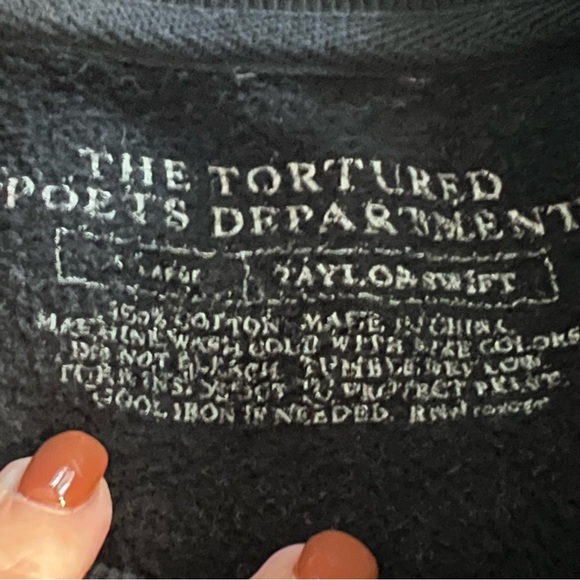 THE TORTURED
POETS DEPARTMENT
LARGE TAYLOR SWIFT
100% COTTON MADE IN CHINA
MACHINE WASH COLD WITH LIKE COLORS
DO NOT BLEACH. TUMBLE DRY LOW.
TURN INSIDE OUT TO PROTECT PRINT.
COOL IRON IF NEEDED.